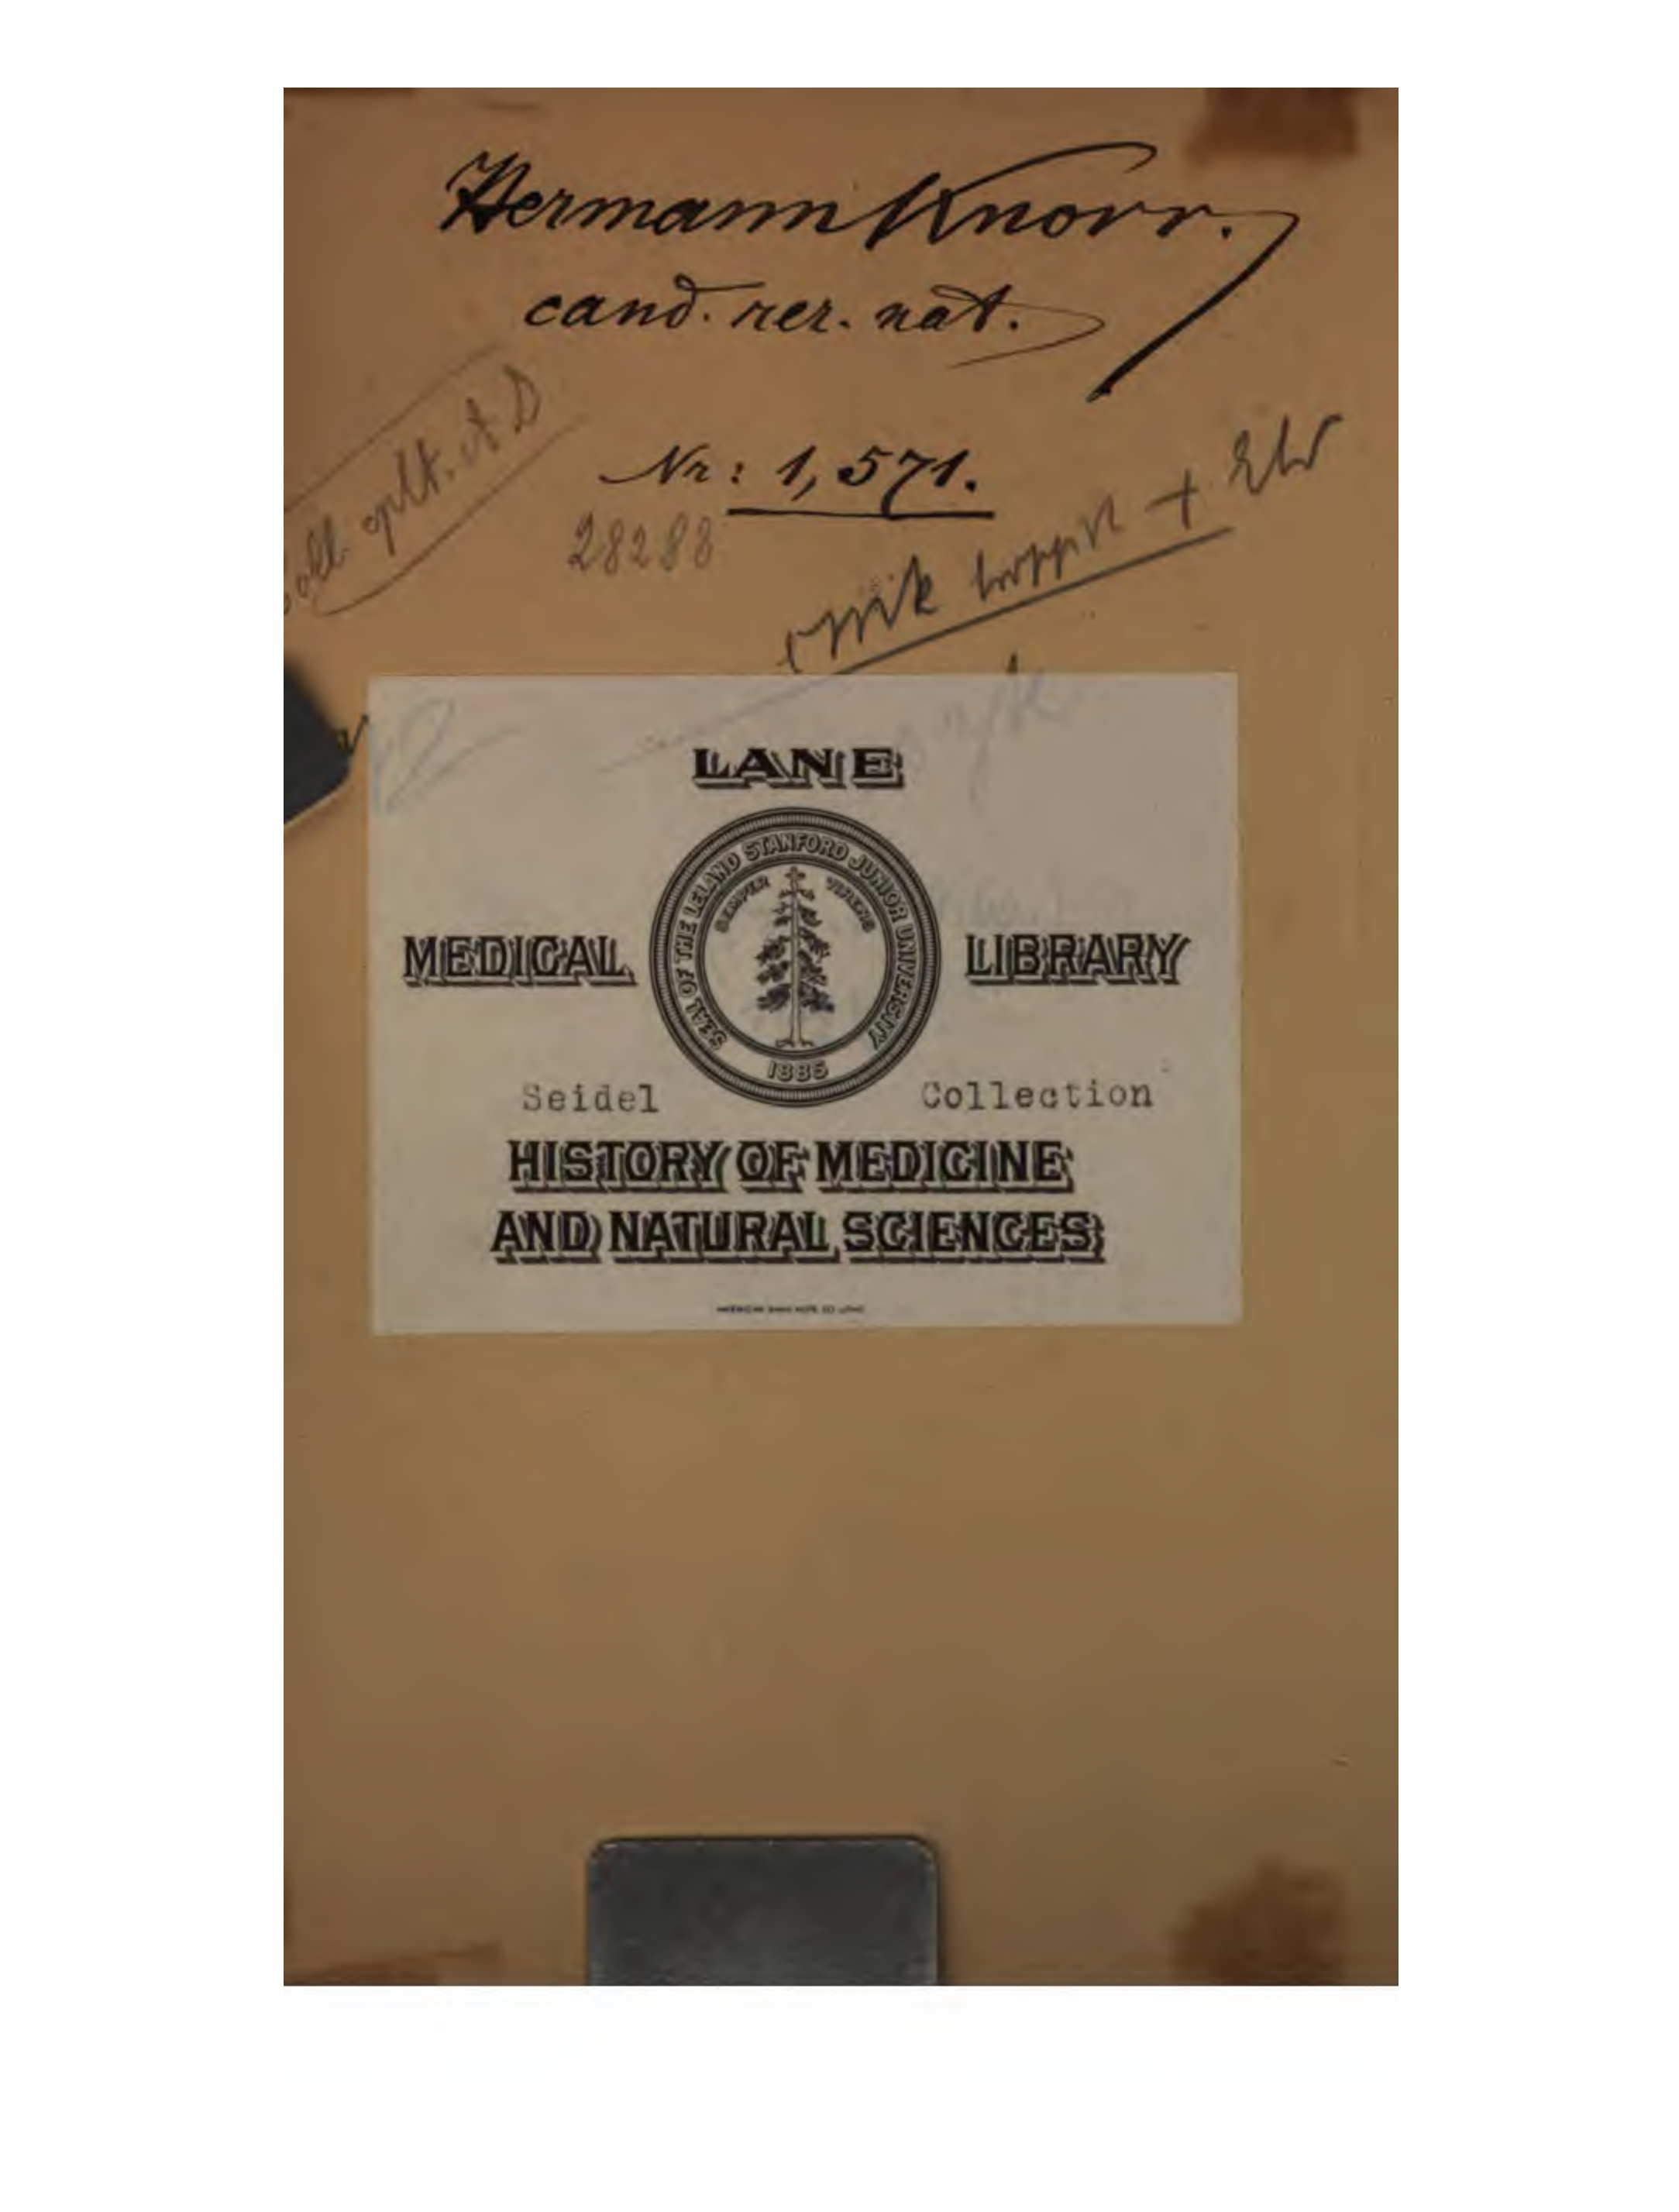 Hermann Knorr.
cand. rer. nat.
Nr: 1,571.
28288
LANE
MEDICAL LIBRARY
SEAL OF THE LELAND STANFORD JUNIOR UNIVERSITY
SEMPER VIRENS
1885
Seidel Collection
HISTORY OF MEDICINE
AND NATURAL SCIENCES